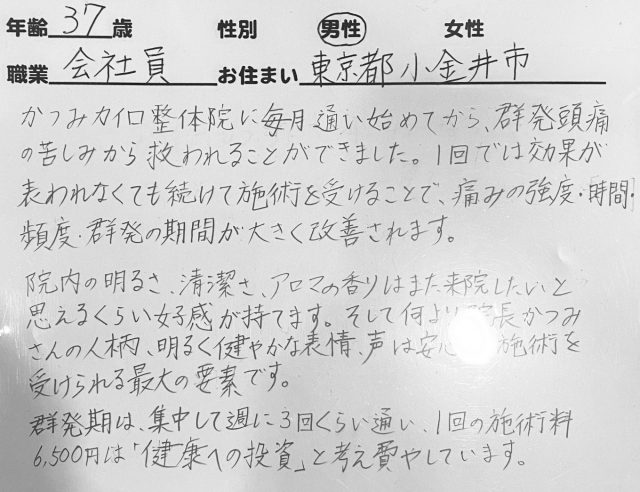 年齢 37 歳 性別 男性 女性
職業 会社員 お住まい 東京都小金井市
かつみカイロ整体院に毎月通い始めてから、群発頭痛
の苦しみから救われることができました。1回では効果が
表われなくても続けて施術を受けることで、痛みの強度・時間・
頻度・群発の期間が大きく改善されます。
院内の明るさ、清潔さ、アロマの香りはまた来院したいと
思えるくらい好感が持てます。そして何より 長かつみ
さんの人柄、明るく健やかな表情、声は安 施術を
受けられる最大の要素です。
群発期は、集中して週に3回くらい通い、1回の施術料
6,500円は「健康への投資」と考え費やしています。